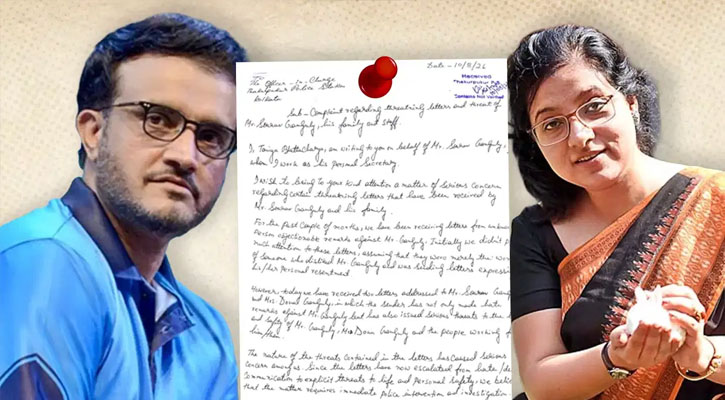 Date - 10/8/26
To
The Officer - in - Charge
Thakurpukur Police Station
Kolkata
Received
Contents Not Verified
Sub - Complaint regarding threatening letters and threat of
Mr Sourav Ganguly, his family and staff.
I, Taniya Bhattacharya, am writing to you on behalf of Mr. Sourav Ganguly,
whom I work as his Personal Secretary.
I wish to bring to your kind attention a matter of serious concern
regarding certain threatening letters that have been received by
Mr Sourav Ganguly and his family.
For the Past Couple of months, we have been receiving letters from
Person objectionable remarks against Mr. Ganguly. Initially we didn't
much attention to these letters, assuming that they were merely the
of Someone who disliked Mr. Ganguly and was sending letters
his/her Personal resentment
However, today we have received two letters addressed to Mr Sourav
and Mrs. Dona Ganguly, in which the sender has not only made hate
remarks against Mr Ganguly but has also issued serious threats to the
and Safety of Mr. Ganguly, Mrs Dona Ganguly and the people working
him/them.
The nature of the threats contained in the letters has caused Serious
concern among us. Since the letters have now escalated from hate/
Communication to explicit threats to life and personal safety, we
that the matter requires immediate police intervention and investigation